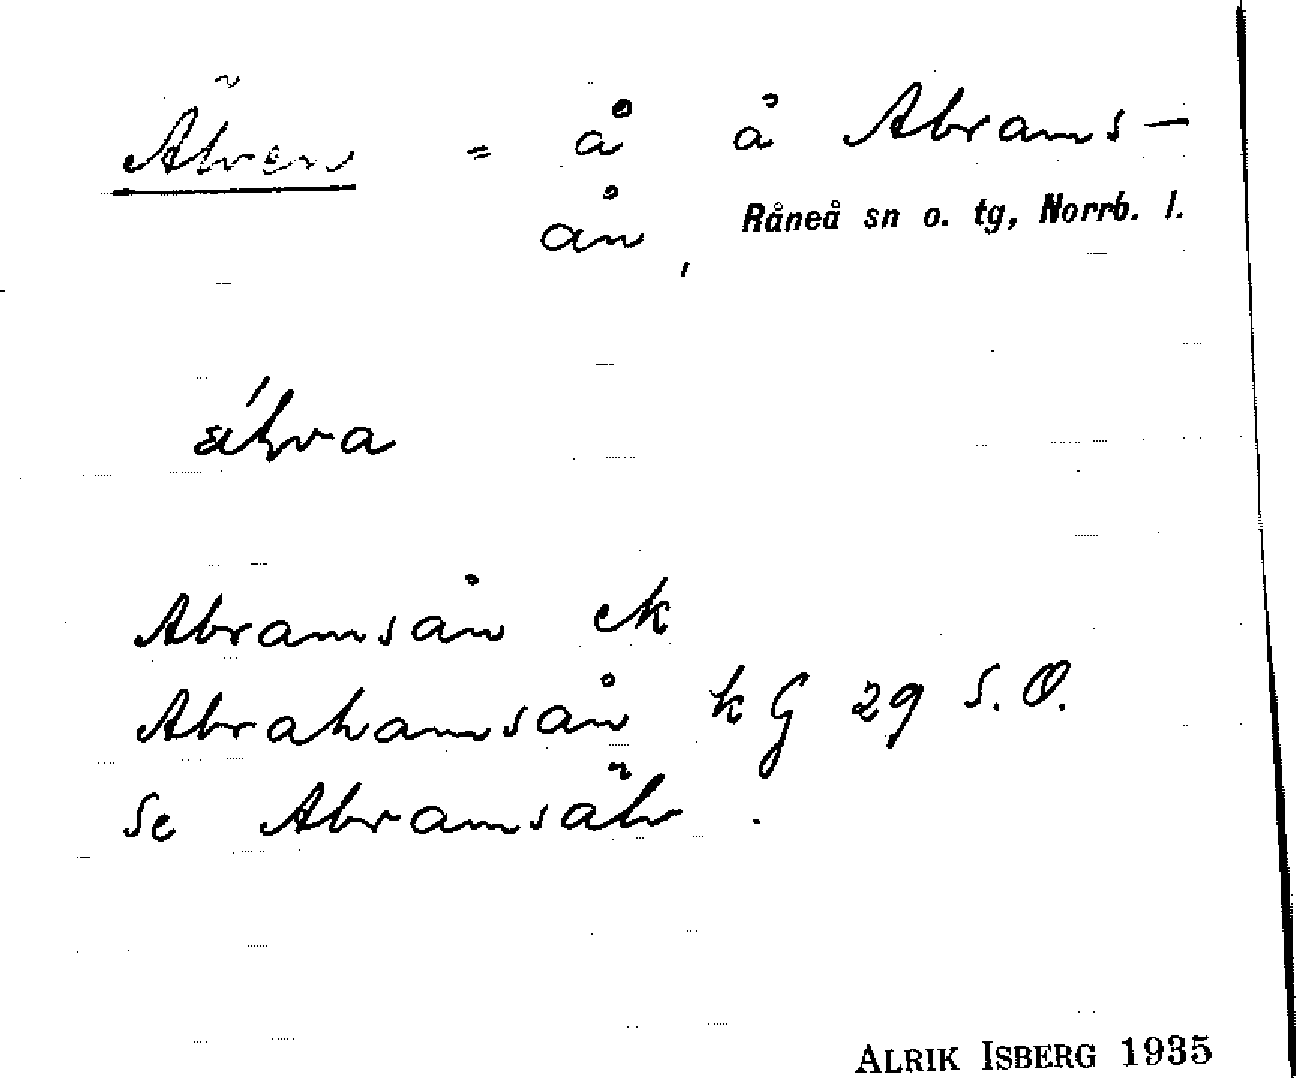 Älven = å å Abrams-
ån, Råneå sn o. tg, Norrb. l.
álva
Abramsån ek
Abrahamsån kG 29 S.O.
Se Abramsälv.
ALRIK ISBERG 1935